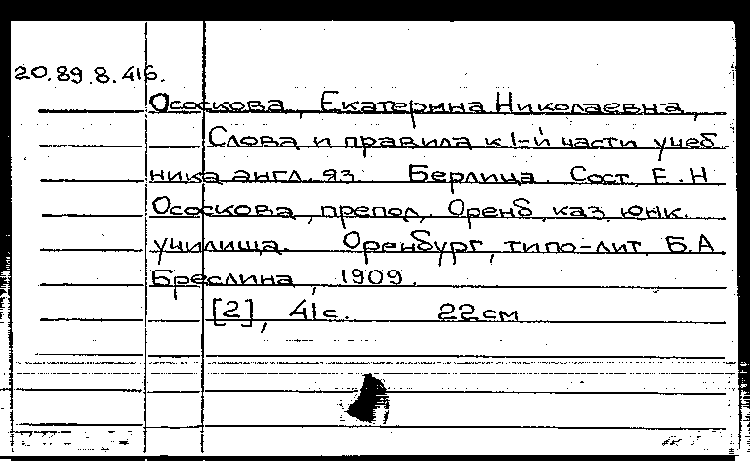 20.89.8.416.
Ососкова, Екатерина Николаевна,
Слова и правила к I-й части учеб
ника англ. яз. Берлица. Сост. Е.Н
Ососкова, препод. Оренб. каз. юнк.
училища. Оренбург, типо-лит. Б.А
Бреслина, 1909.
[2], 41 с. 22 см